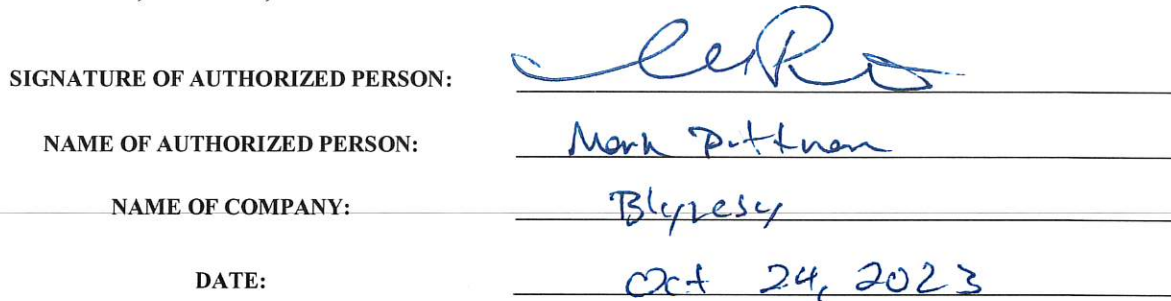 SIGNATURE OF AUTHORIZED PERSON:
NAME OF AUTHORIZED PERSON: Mark Pittman
NAME OF COMPANY: Blyncsy
DATE: Oct 24, 2023